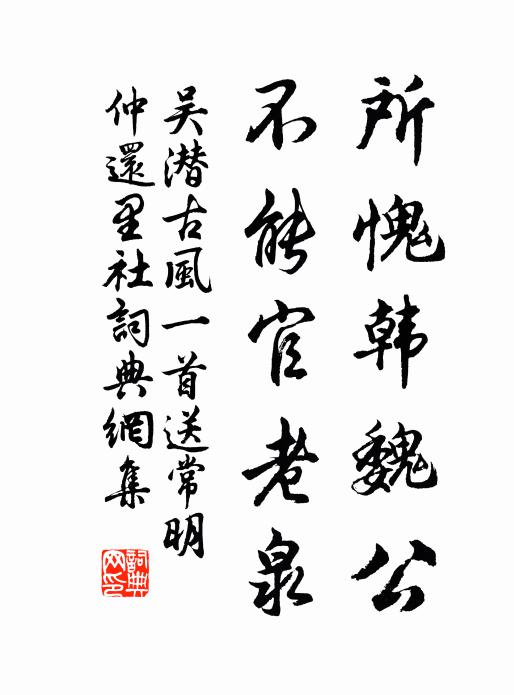 所愧韩魏公
不能官老泉
吴潜古風一首送常明
仲還里社詞典網集
詞典
网印